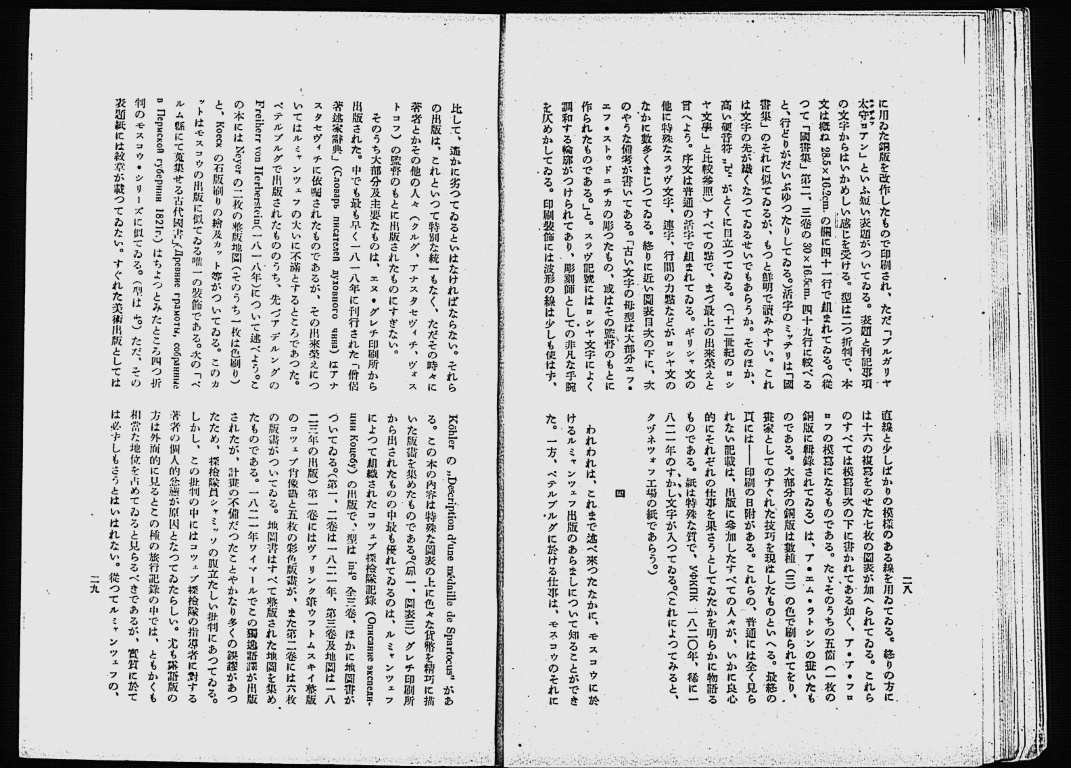 に用ゐた銅版を改作したもので印刷され、ただ「ブルガリヤ
太守ヨアン」といふ短い表題がついてゐる。表題と刊記事項
の文字からはいかめしい感じを受ける。型は二つ折判で、本
文は概ね 28.5×16.2cm の欄に四十一行で組まれてゐる。(從
つて「國書集」第二、三卷の 30×16.5cm. 四十九行に較べる
と、行どりがだいぶゆつたりしてゐる。)活字のミッチリは「國
書集」のそれに似てゐるが、もつと鮮明で讀みやすい。これ
は文字の先が纎くなつてゐるせいでもあらうか。そのほか、
高い硬音符 „Ъ“ がとくに目立つてゐる。(「十二世紀のロシ
ヤ文學」と比較參照) すべての點で、まづ最上の出來榮えと
言へよう。序文は普通の活字で組まれてゐる。ギリシャ文の
他に特殊なスラヴ文字、連字、行間の力點などがロシャ文の
なかに數多くまじつてゐる。終りに近い圖表目次の下に、次
のやうな備考が書いてある。「古い文字の母型は大部分エフ・
エフ・ストゥドニチカの彫つたもの、或はその監督のもとに
作られたものである。」と。スラヴ記號にはロシヤ文字によく
調和する輪廓がつけられてあり、彫刻師としての非凡な手腕
を仄めかしてゐる。印刷裝飾には波形の線は少しも使はず、
直線と少しばかりの模樣のある線を用ゐてゐる。終りの方に
は十六の複寫をのせた七枚の圖表が加へられてゐる。これら
のすべては模寫目次の下に書かれてある如く、ア・ア・フロ
ロフの模寫になるものである。たゞそのうちの五箇(一枚の
銅版に輯錄されてゐる)は、ア・エム・ラトシンの畫いたも
のである。大部分の銅版は數種(三)の色で刷られてをり、
畫家としてのすぐれた技巧を現はしたものといへる。最終の
頁には――印刷の日附がある。これらの、普通には全く見ら
れない記載は、出版に參加したすべての人々が、いかに良心
的にそれぞれの仕事を果さうとしてゐたかを明らかに物語る
ものである。紙は特殊な質で、УФКПК 一八二〇年、稀に一
八二一年のすかし文字が入つてゐる。(これによつてみると、
クヅネツォフ工場の紙であらう。)
四
われわれは、これまで述べ來つたなかに、モスコウに於
けるルミャンツェフ出版のあらましについて知ることができ
た。一方、ペテルブルグに於ける仕事は、モスコウのそれに
二八
比して、遙かに劣つてゐるといはなければならない。それら
の出版は、これといつて特別な統一もなく、ただその時々に
著者とかその他の人々(クルグ、アナスタセヴィチ、ヴォス
トコフ)の監督のもとに出版されたものにすぎない。
そのうち大部分及主要なものは、エヌ・グレチ印刷所から
出版された。中でも最も早く一八一八年に刊行された「僧侶
著述家辭典」(Словарь писателей духовного чина) はアナ
スタセヴィチに依囑されたものであるが、その出來榮えにつ
いてはルミャンツェフの大いに不滿とするところであつた。
ペテルブルグで出版されたもののうち、先づアデルングの
Freiherr von Herberstein(一八一八年)について述べよう。こ
の本には Neyer の二枚の整版地圖(そのうち一枚は色刷り)
と、Koeck の石版刷りの繪及カット等がついてゐる。このカ
ットはモスコウの出版に似てゐる唯一の裝飾である。次の「ペ
ルム縣にて蒐集せる古代國書」(Древние грамоты, собранные
в Пермской губернии 1821г.) はちょつとみたところ四つ折
判のモスコウ・シリーズに似てゐる。(型は 4°.) ただ、その
表題紙には紋章が載つてゐない。すぐれた美術出版としては
Köhler の „Description d'une médaille de Spartocus“ があ
る。この本の內容は特殊な圖表の上に色々な貨幣を精巧に描
いた版畫を集めたものである。グレチ印刷所
から出されたものの中最も優れてゐるのは、ルミャンツェフ
によつて組織されたコツェブ探檢隊記錄 (Описание экспеди-
ции Коцебу) の出版で、型は in4°. 全三卷、ほかに地圖書が
ついてゐる。(第一、二卷は一八二一年、第三卷及地圖は一八
二三年の出版) 第一卷にはヴァリンク筆ウフトムスキイ整版
のコツェブ肖像畫と五枚の彩色版畫が、また第二卷には六枚
の版畫がついてゐる。地圖書はすべて整版された地圖を集め
たものである。一八二一年ワイマールでこの獨逸語譯が出版
されたが、計畫の不備だつたことやかなり多くの誤謬があつ
たため、探檢隊員シャミッソの腹立たしい批判にあつてゐる。
しかし、この批判の中にはコツェブ探檢隊の指導者に對する
著者の個人的忿懣が原因となつてゐたらしい。尤も露語版の
方は外面的に見るとこの種の旅行記錄の中では、ともかくも
相當な地位を占めてゐると見らるべきであるが、實質に於て
は必ずしもさうとはいはれない。從つてルミャンツェフの、
二九